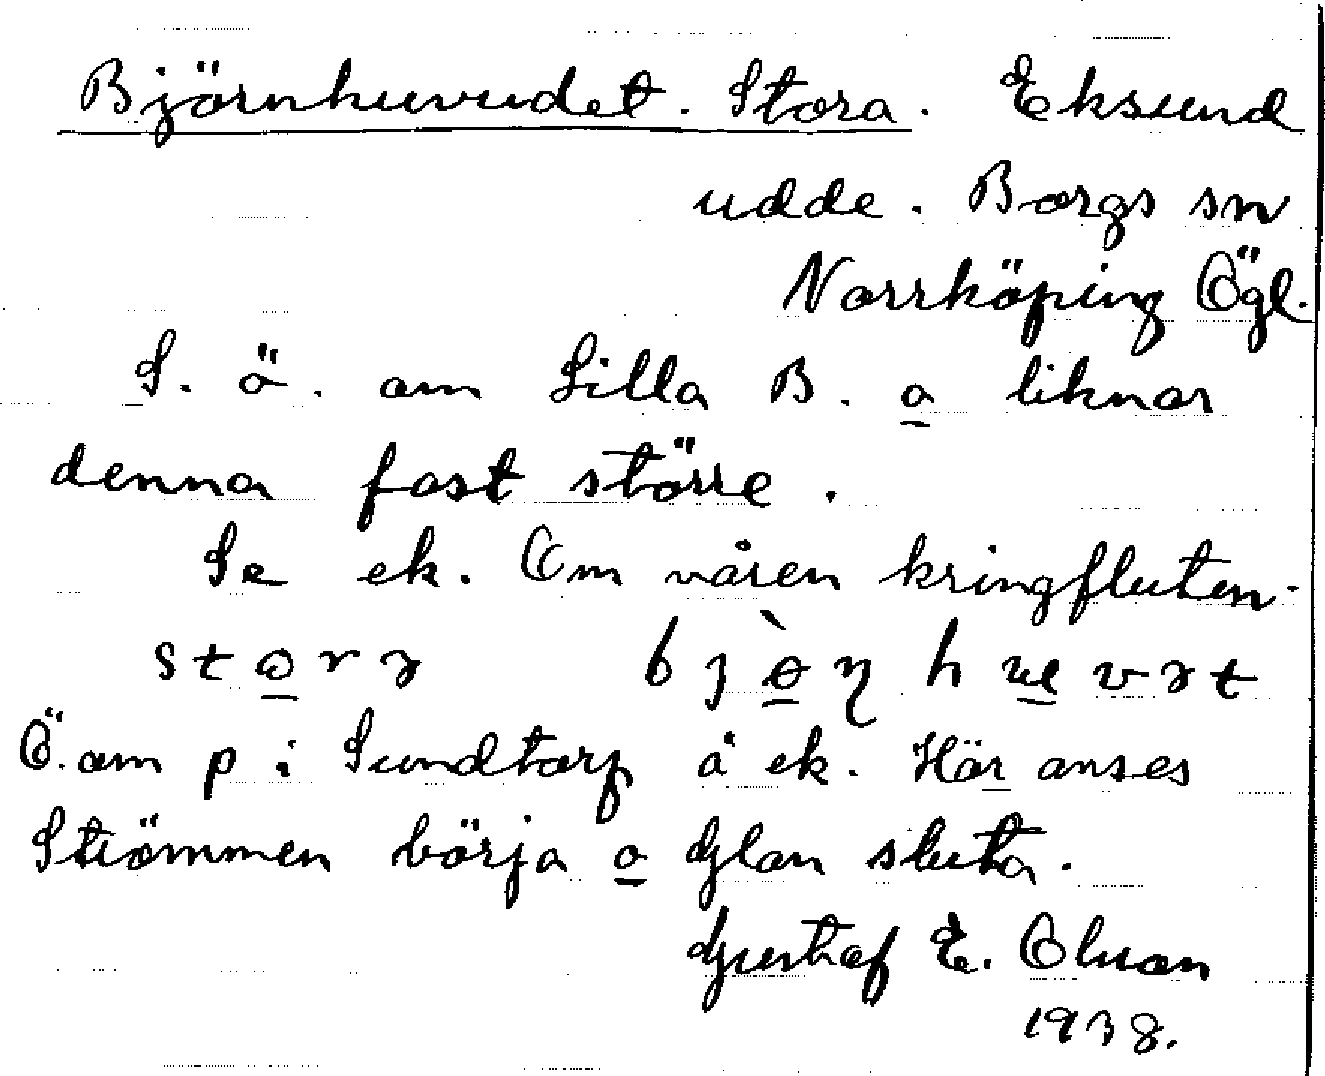 Björnhuvudet. Stora. Eksund
udde. Borgs sn
Norrköping Ögl.
S. ö. om Lilla B. o liknar
denna fast större.
Se ek. Om våren kringfluten.
Ö. om p i Sundtorp å ek. Här anses
Strömmen börja o Glan sluta.
Gustaf E. Olson
1938.